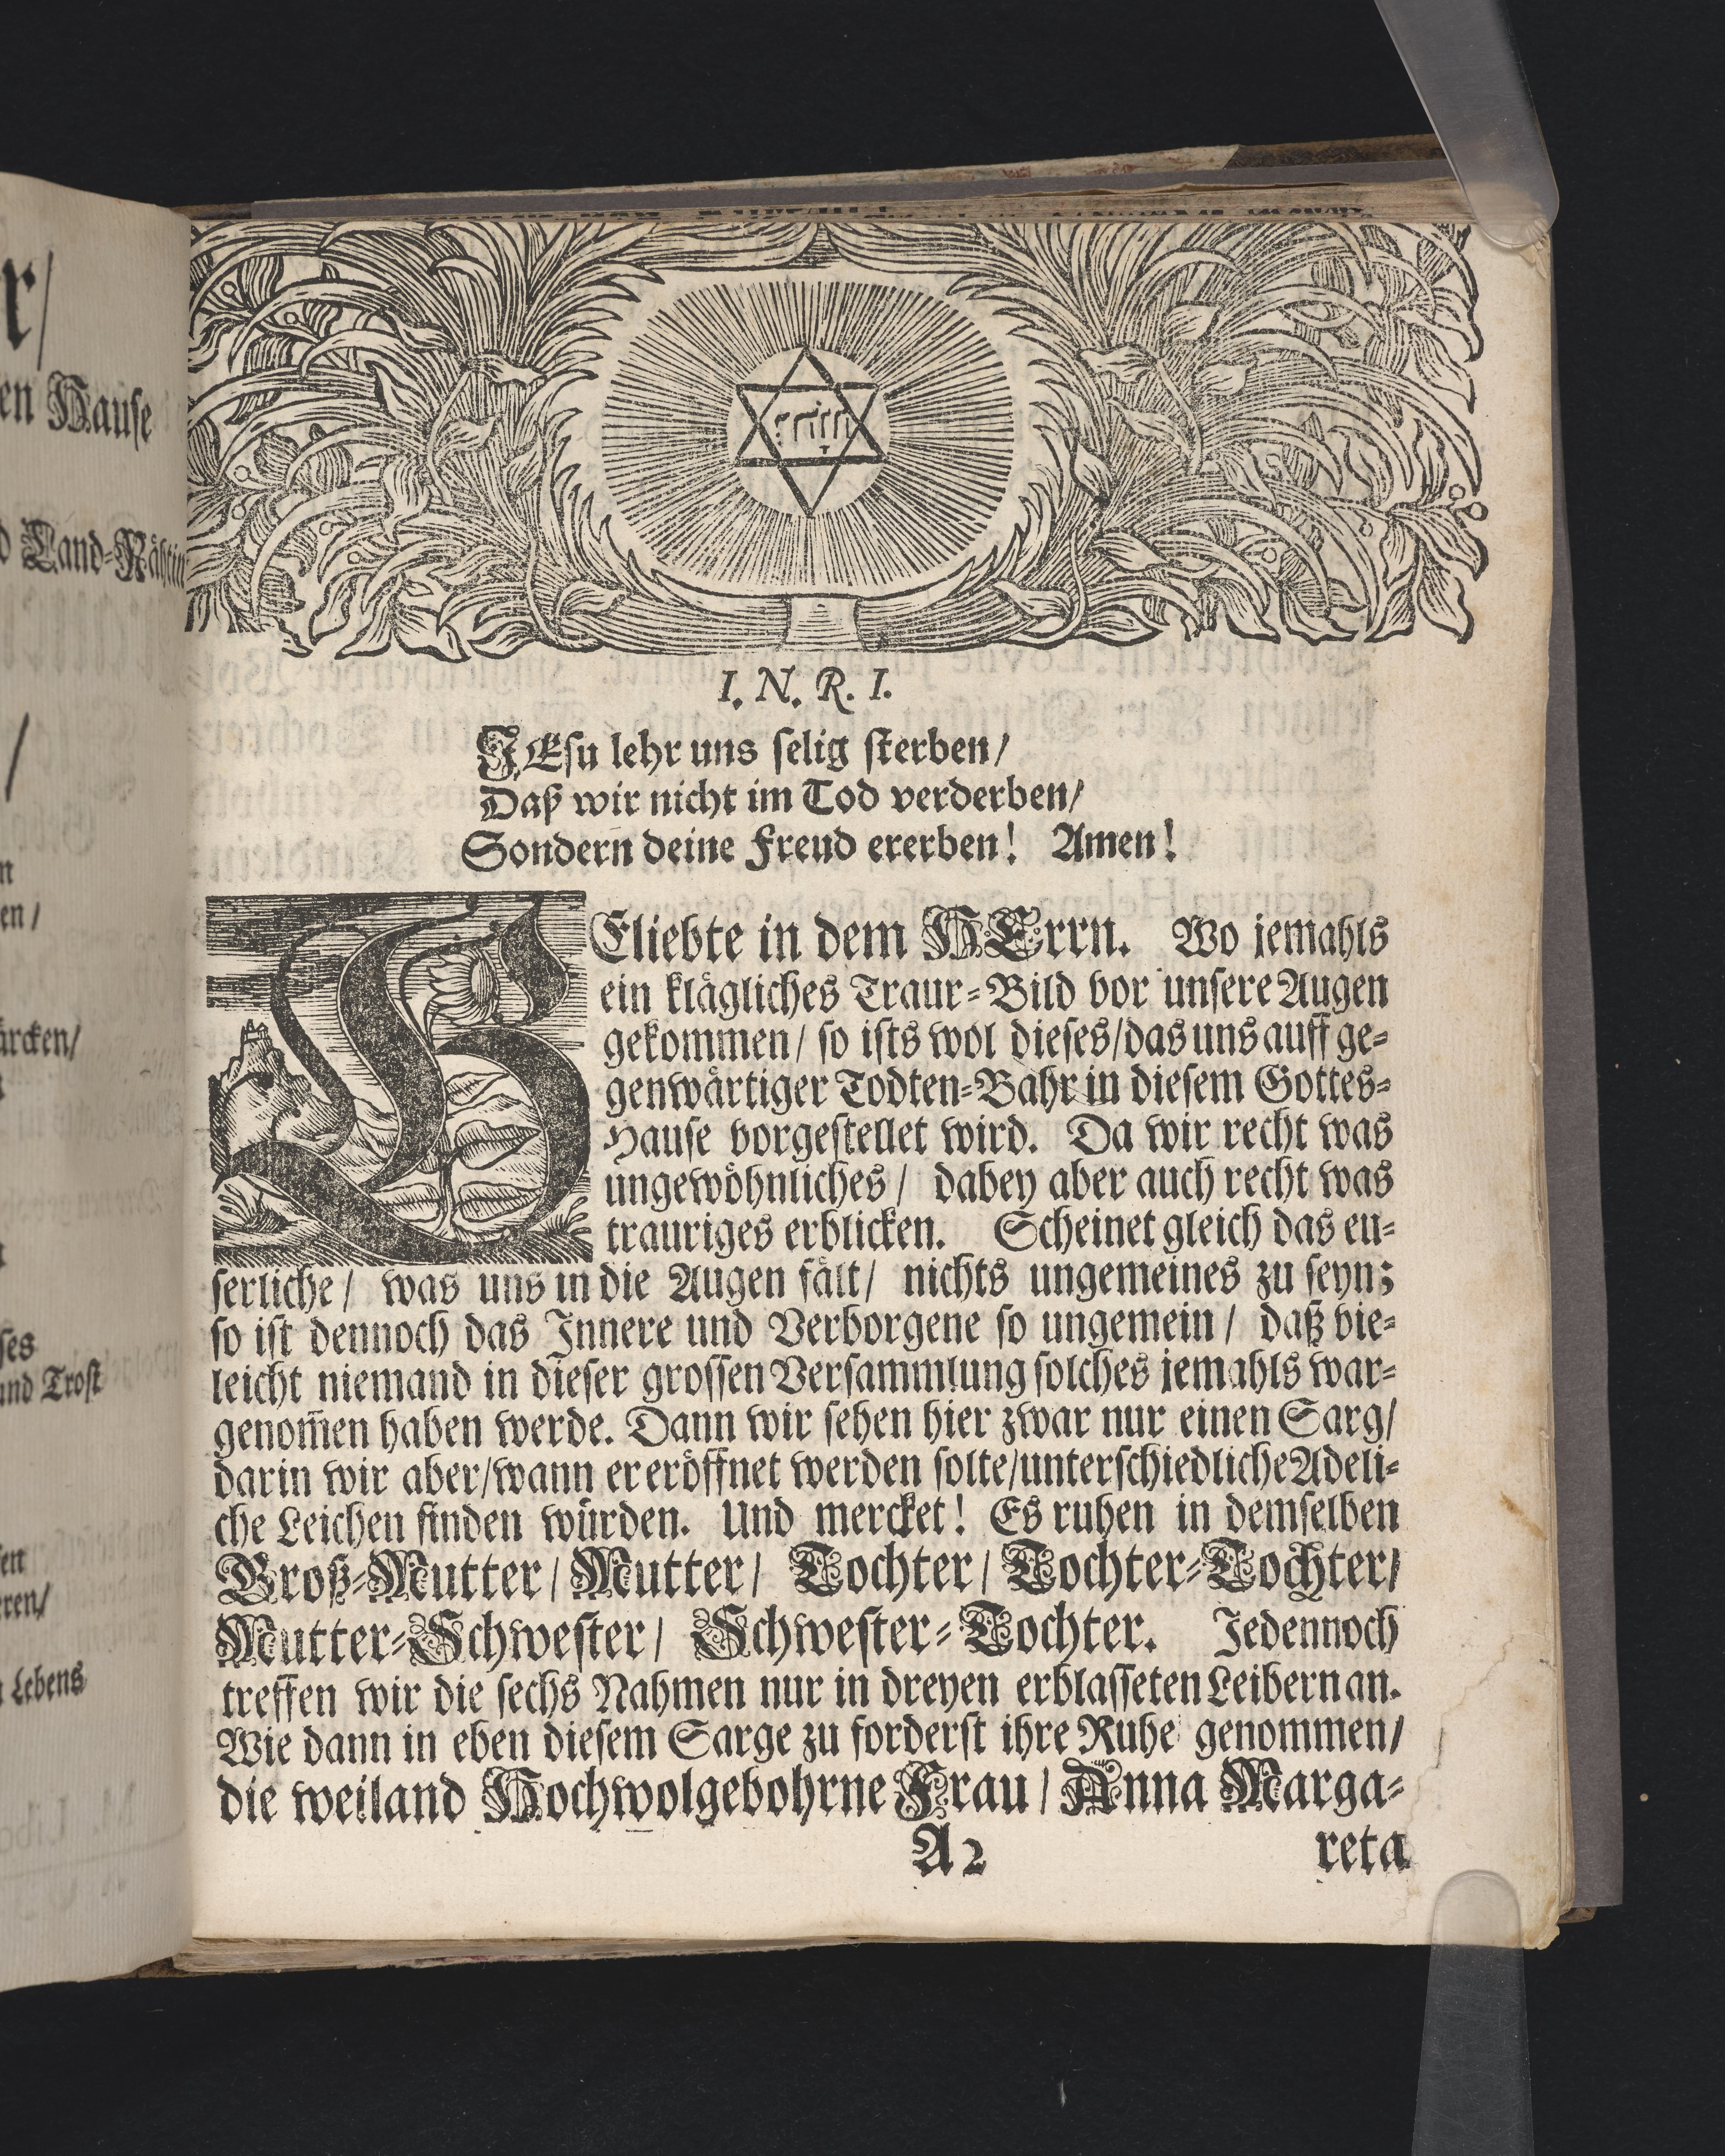 r/
en Hause
d Land-Räthin
/
n
en /
ärcken/
ses
und Trost
sen
eren/
n Lebens
יהוה
I. N. R. I.
JEsu lehr uns selig sterben/
Daß wir nicht im Tod verderben/
Sondern deine Freud ererben! Amen!
GEliebte in dem HErrn. Wo jemahls
ein klägliches Traur-Bild vor unsere Augen
gekommen/ so ists wol dieses/das uns auff ge-
genwärtiger Todten-Bahr in diesem Gottes-
Hause vorgestellet wird. Da wir recht was
ungewöhnliches/ dabey aber auch recht was
trauriges erblicken. Scheinet gleich das eu-
serliche/ was uns in die Augen fält/ nichts ungemeines zu seyn;
so ist dennoch das Innere und Verborgene so ungemein/ daß vie-
leicht niemand in dieser grossen Versammlung solches jemahls war-
genom̃en haben werde. Dann wir sehen hier zwar nur einen Sarg/
darin wir aber/wann er eröffnet werden solte/unterschiedliche Adeli-
che Leichen finden würden. Und mercket! Es ruhen in demselben
Groß-Mutter/ Mutter/ Tochter/ Tochter-Tochter/
Mutter-Schwester/ Schwester-Tochter. Jedennoch
treffen wir die sechs Nahmen nur in dreyen erblasseten Leibern an.
Wie dann in eben diesem Sarge zu forderst ihre Ruhe genommen/
die weiland Hochwolgebohrne Frau/ Anna Marga-
A 2 reta